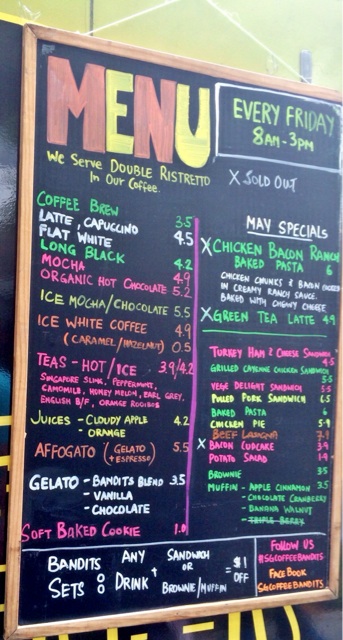 MENU
EVERY FRIDAY
8AM - 3PM
We Serve DOUBLE RISTRETTO
In Our Coffee.
X SOLD OUT
COFFEE BREW 3.5
LATTE, CAPUCCINO
FLAT WHITE 4.5
LONG BLACK 4.2
MOCHA 4.9
ORGANIC HOT CHOCOLATE 5.2
ICE MOCHA/CHOCOLATE 5.5
ICE WHITE COFFEE 4.9
(CARAMEL/HAZELNUT) 0.5
TEAS - HOT/ICE 3.9/4.2
SINGAPORE SLING, PEPPERMINT,
CAMOMILE, HONEY MELON, EARL GREY,
ENGLISH B/F, ORANGE ROOIBOS
JUICES - CLOUDY APPLE 4.2
- ORANGE
AFFOGATO (GELATO + ESPRESSO) 5.5
GELATO - BANDITS BLEND 3.5
- VANILLA
- CHOCOLATE
SOFT BAKED COOKIE 1.0
MAY SPECIALS
X CHICKEN BACON RANCH
BAKED PASTA 6
CHICKEN CHUNKS & BACON
IN CREAMY RANCH SAUCE.
BAKED WITH CHEESY CHEESE
X GREEN TEA LATTE 4.9
TURKEY HAM & CHEESE SANDWICH
GRILLED CAYENNE CHICKEN SANDWICH
5.5
VEGE DELIGHT SANDWICH 5.5
PULLED PORK SANDWICH 6.5
BAKED PASTA 6
CHICKEN PIE 5.9
BEEF LASAGNA 7.9
X BACON CUPCAKE 3.9
POTATO SALAD 1.9
BROWNIE 3.5
MUFFIN - APPLE CINNAMON 3.5
- CHOCOLATE CRANBERRY
- BANANA WALNUT
- TRIPLE BERRY
BANDITS SETS : ANY DRINK + SANDWICH OR BROWNIE/MUFFIN = $1 OFF
FOLLOW US
#SGCOFFEEBANDITS
FACEBOOK
SGCOFFEEBANDITS